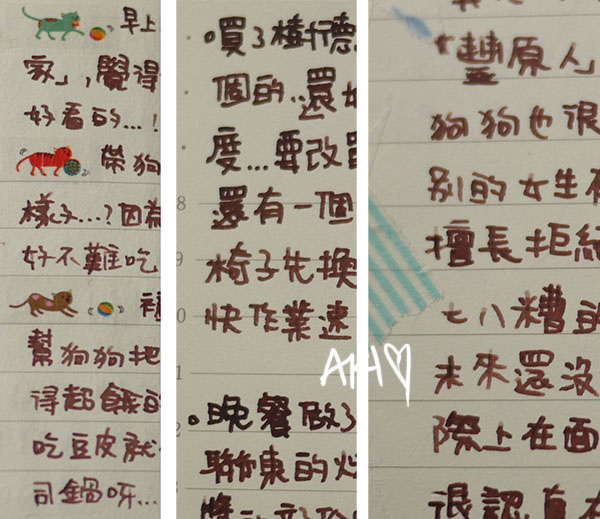 早上
家」,覺得
好看的...!
帶狗
樣子...?因為
好不難吃
幫狗狗把
得超餓的
吃豆皮就
司鍋呀...
買了樹德
個的..還
度...要改
還有一個
椅子先換
快作業速
晚餐做了
聯東的
8
9
0
1
2
AKH♡
「豐原人
狗狗也很
別的女生
擅長拒絕
七八糟的
未來還沒
際上在面
很認真